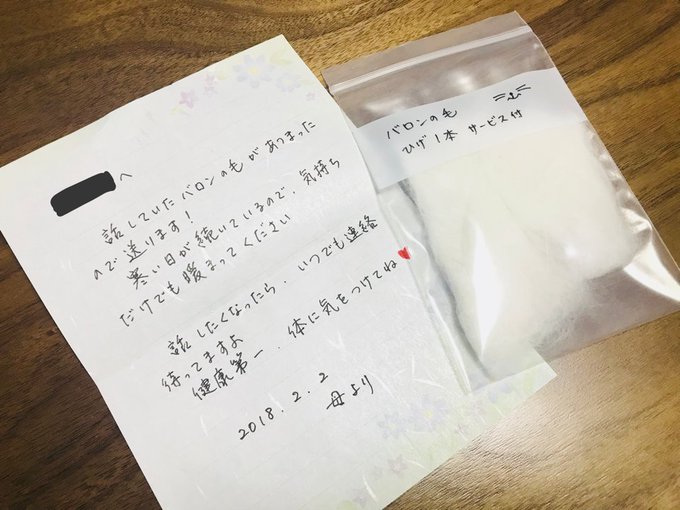 へ
話していたバロンの毛があつまった
ので送ります!
寒い日が続いているので、気持ち
だけでも暖まってください
話したくなったら、いつでも連絡
待ってますよ
健康第一、体に気をつけてね♥
2018.2.2
母より
バロンの毛
ひげ1本 サービス付